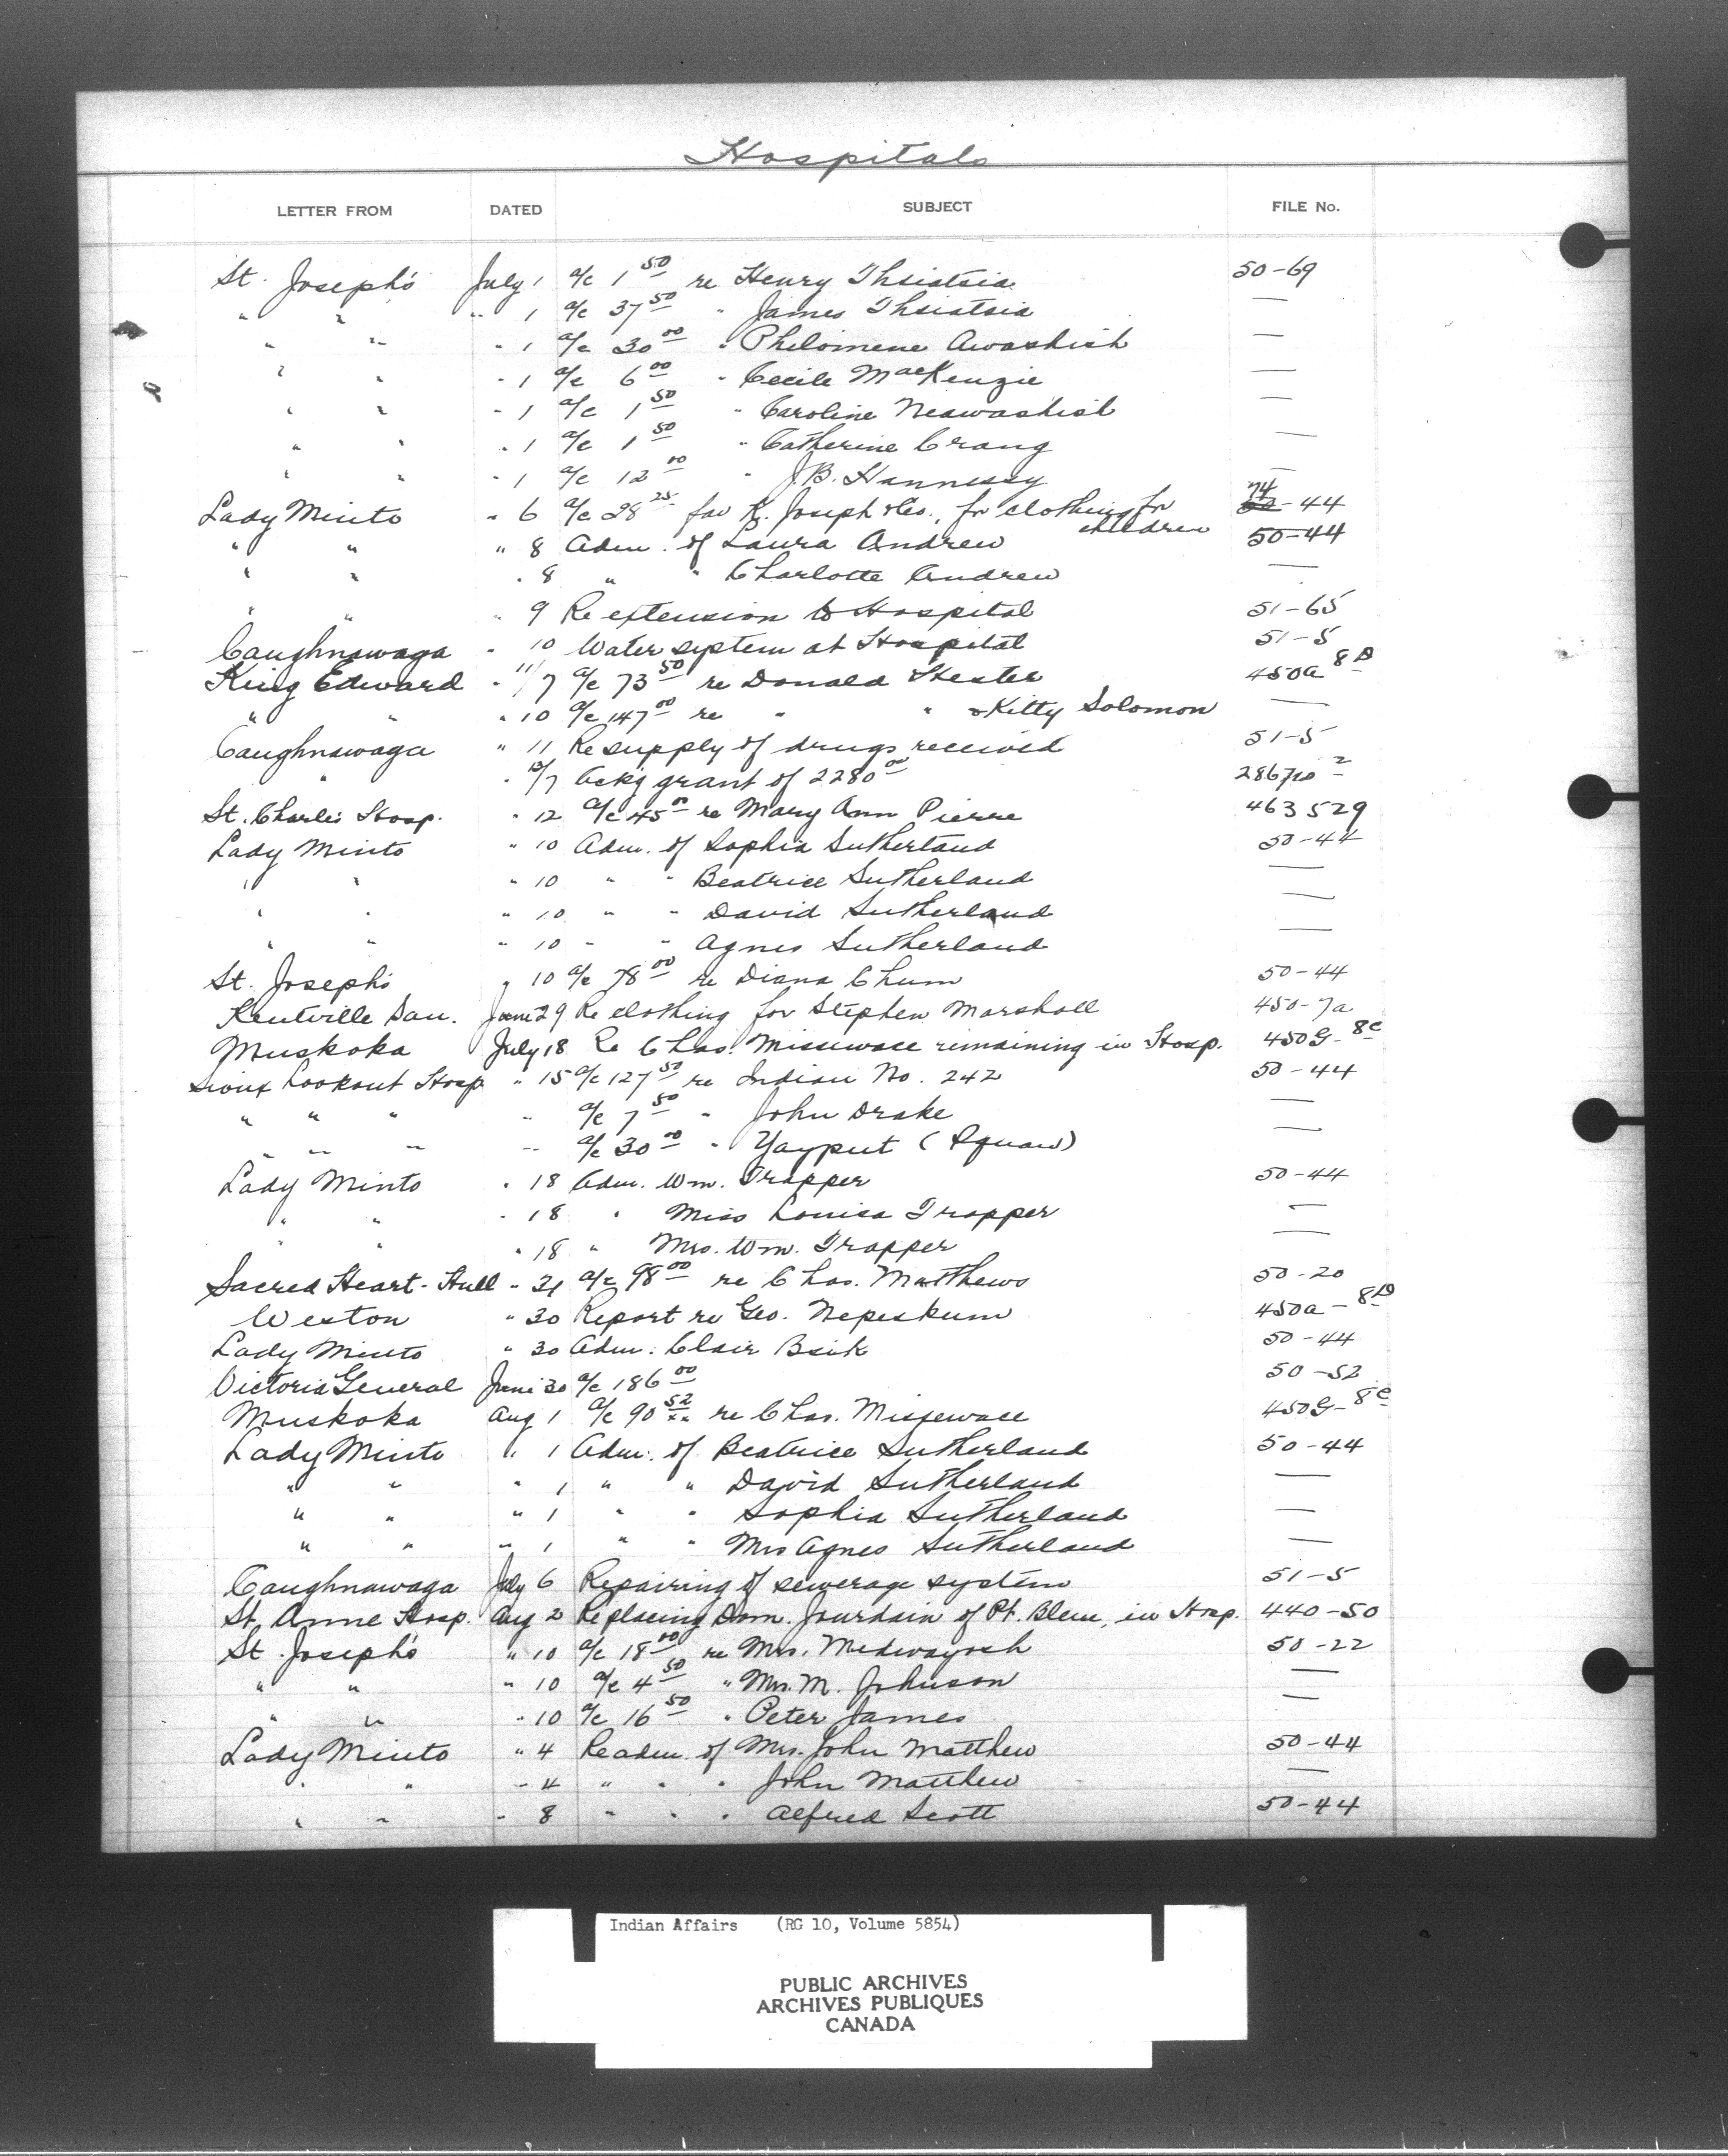 Hospitals
LETTER FROM DATED SUBJECT FILE No.
St. Joseph's July 1 a/c 1 50 re Henry Thsiatsia 50-69
" " " 1 a/c 37 50 " James Thsiatsia —
" " " 1 a/c 30 00 " Philomene Awashish —
" " " 1 a/c 6 00 " Cecile MacKenzie —
" " " 1 a/c 1 50 " Caroline Neawashish —
" " " 1 a/c 1 50 " Catherine Crang —
" " " 1 a/c 12 00 " J.B. Hannessy —
Lady Minto " 6 a/c 28 25 fav K. Joseph & Co., for clothing for children 74-44
" " " 8 Adm. of Laura Andrew 50-44
" " " 8 " " Charlotte Andrew —
" " " 9 Re extension to Hospital 51-65
Caughnawaga " 10 Water system at Hospital 51-5
King Edward " 11/7 a/c 73 50 re Donald Hester 450a 8D
" " " 10 a/c 147 00 re " " & Kitty Solomon —
Caughnawaga " 11 Re supply of drugs received 51-5
" " 13/7 Ackg grant of 2280 00 286710 2
St. Charles Hosp. " 12 a/c 45 00 re Mary Ann Pierre 463529
Lady Minto " 10 Adm. of Sophia Sutherland 50-44
" " " 10 " " Beatrice Sutherland —
" " " 10 " " David Sutherland —
" " " 10 " " Agnes Sutherland —
St. Joseph's " 10 a/c 78 00 re Diana Chum 50-44
Kentville San. June 29 Re clothing for Stephen Marshall 450-7a
Muskoka July 18 Re Chas. Missewace remaining in Hosp. 450G-8c
Sioux Lookout Hosp. " 15 a/c 127 50 re Indian No. 242 50-44
" " " " a/c 7 50 " John Drake —
" " " " a/c 30 00 " Yayput (Squaw) —
Lady Minto " 18 Adm. Wm. Trapper 50-44
" " " 18 " Miss Louisa Trapper —
" " " 18 " Mrs. Wm. Trapper —
Sacred Heart - Hull " 21 a/c 98 00 re Chas. Matthews 50-20
Weston " 30 Report re Geo. Nepeskum 450a-8D
Lady Minto " 30 Adm. Clair Bsik 50-44
Victoria General June 30 a/c 186 00 50-52
Muskoka Aug 1 a/c 90 52 re Chas. Missewace 450G-8c
Lady Minto " 1 Adm. of Beatrice Sutherland 50-44
" " " 1 " " David Sutherland —
" " " 1 " " Sophia Sutherland —
" " " 1 " " Mrs Agnes Sutherland —
Caughnawaga July 6 Repairing of sewerage system 51-5
St. Anne Hosp. Aug 2 Replacing Dom. Jourdain of Pt. Bleue, in Hosp. 440-50
St. Joseph's " 10 a/c 18 00 re Mrs. Medwayosh 50-22
" " " 10 a/c 4 50 " Mrs. M. Johnson —
" " " 10 a/c 16 50 " Peter James —
Lady Minto " 4 Readm. of Mrs. John Matthew 50-44
" " " 4 " " " John Matthew —
" " " 8 " " " Alfred Scott 50-44
Indian Affairs (RG 10, Volume 5854)
PUBLIC ARCHIVES
ARCHIVES PUBLIQUES
CANADA